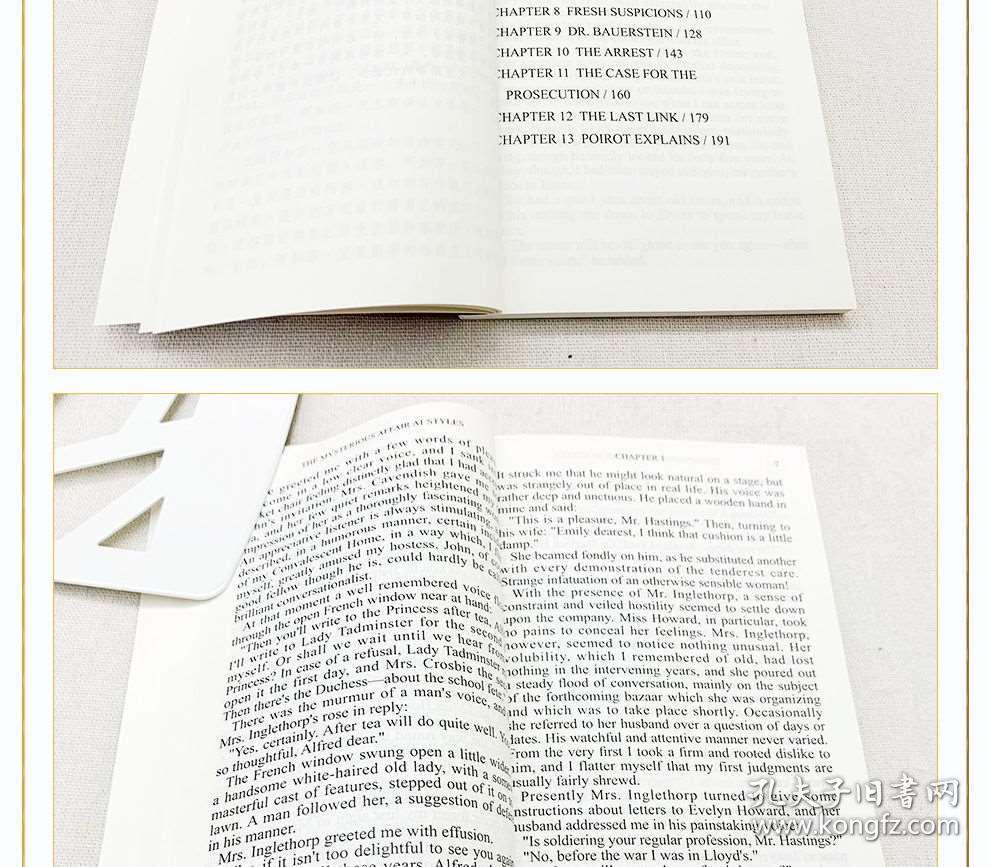 CHAPTER 8 FRESH SUSPICIONS / 110
CHAPTER 9 DR. BAUERSTEIN / 128
CHAPTER 10 THE ARREST / 143
CHAPTER 11 THE CASE FOR THE
PROSECUTION / 160
CHAPTER 12 THE LAST LINK / 179
CHAPTER 13 POIROT EXPLAINS / 191
THE MYSTERIOUS AFFAIR AT STYLES
greeted me with a few words of
in a low clear voice, and I sank
chair feeling distinctly glad that I had
invitation. Mrs. Cavendish gave me
and her few quiet remarks heightened my
impression of her as a thoroughly fascinating
Appreciative listener is always stimulating,
described, in a humorous manner, certain
of my Convalescent Home, in a way which, I
myself, greatly amused my hostess. John, of
good fellow though he is, could hardly be
brilliant conversationalist.
At that moment a well remembered voice
through the open French window near at hand:
"Then you'll write to the Princess after tea,
I'll write to Lady Tadminster for the second
myself. Or shall we wait until we hear from
Princess? In case of a refusal, Lady Tadminster
open it the first day, and Mrs. Crosbie the
Then there's the Duchess—about the school fete."
There was the murmur of a man's voice, and
Mrs. Inglethorp's rose in reply:
"Yes, certainly. After tea will do quite well.
so thoughtful, Alfred dear."
The French window swung open a little wider
a handsome white-haired old lady, with a
masterful cast of features, stepped out of it on
lawn. A man followed her, a suggestion of
in his manner.
Mrs. Inglethorp greeted me with effusion.
if it isn't too delightful to see you again
these years. Alfred
CHAPTER 1
7
It struck me that he might look natural on a stage, but
was strangely out of place in real life. His voice was
rather deep and unctuous. He placed a wooden hand in
mine and said:
"This is a pleasure, Mr. Hastings." Then, turning to
his wife: "Emily dearest, I think that cushion is a little
damp."
She beamed fondly on him, as he substituted another
with every demonstration of the tenderest care.
Strange infatuation of an otherwise sensible woman!
With the presence of Mr. Inglethorp, a sense of
constraint and veiled hostility seemed to settle down
upon the company. Miss Howard, in particular, took
no pains to conceal her feelings. Mrs. Inglethorp,
however, seemed to notice nothing unusual. Her
volubility, which I remembered of old, had lost
nothing in the intervening years, and she poured out
a steady flood of conversation, mainly on the subject
of the forthcoming bazaar which she was organizing
and which was to take place shortly. Occasionally
she referred to her husband over a question of days or
dates. His watchful and attentive manner never varied.
From the very first I took a firm and rooted dislike to
him, and I flatter myself that my first judgments are
usually fairly shrewd.
Presently Mrs. Inglethorp turned to give some
instructions about letters to Evelyn Howard, and her
husband addressed me in his painstaking voice:
"Is soldiering your regular profession, Mr. Hastings?"
"No, before the war I was in Lloyd's."
孔夫子旧书网
www.kongfz.com